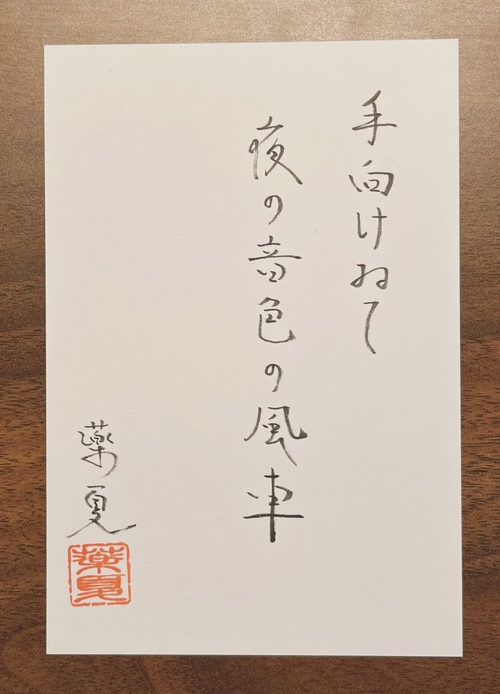 手向けねて
夜の音色の風車
薬夏
薬夏